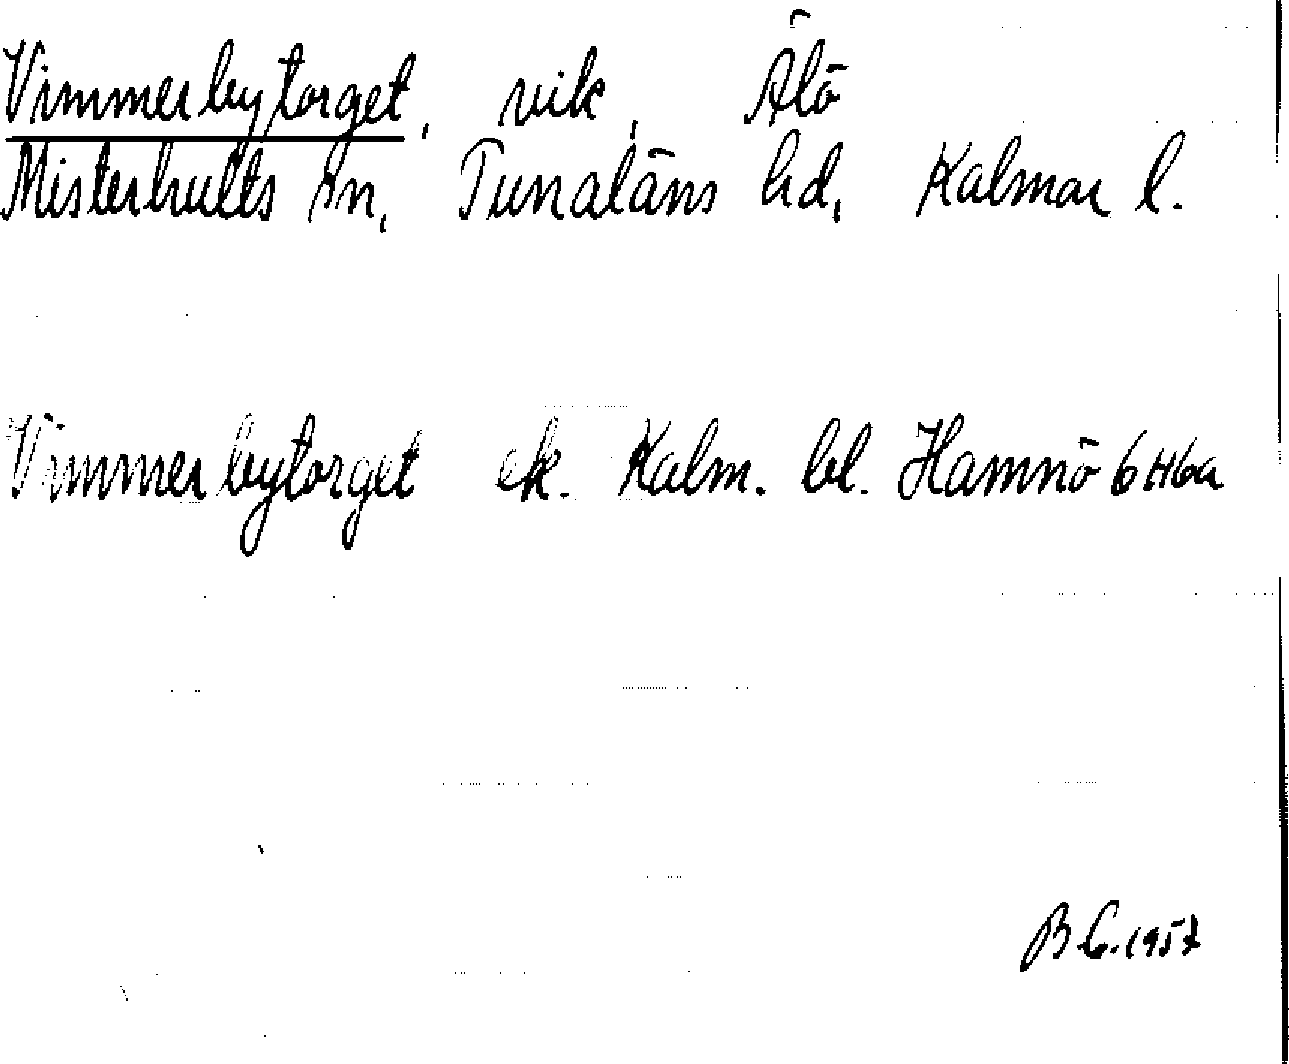 Vimmerbytorget, vik, Älö
Misterhults sn, Tunaläns hd, Kalmar l.
Vimmerbytorget ek. Kalm. bl. Hamnö 6H6a
B G. 1957